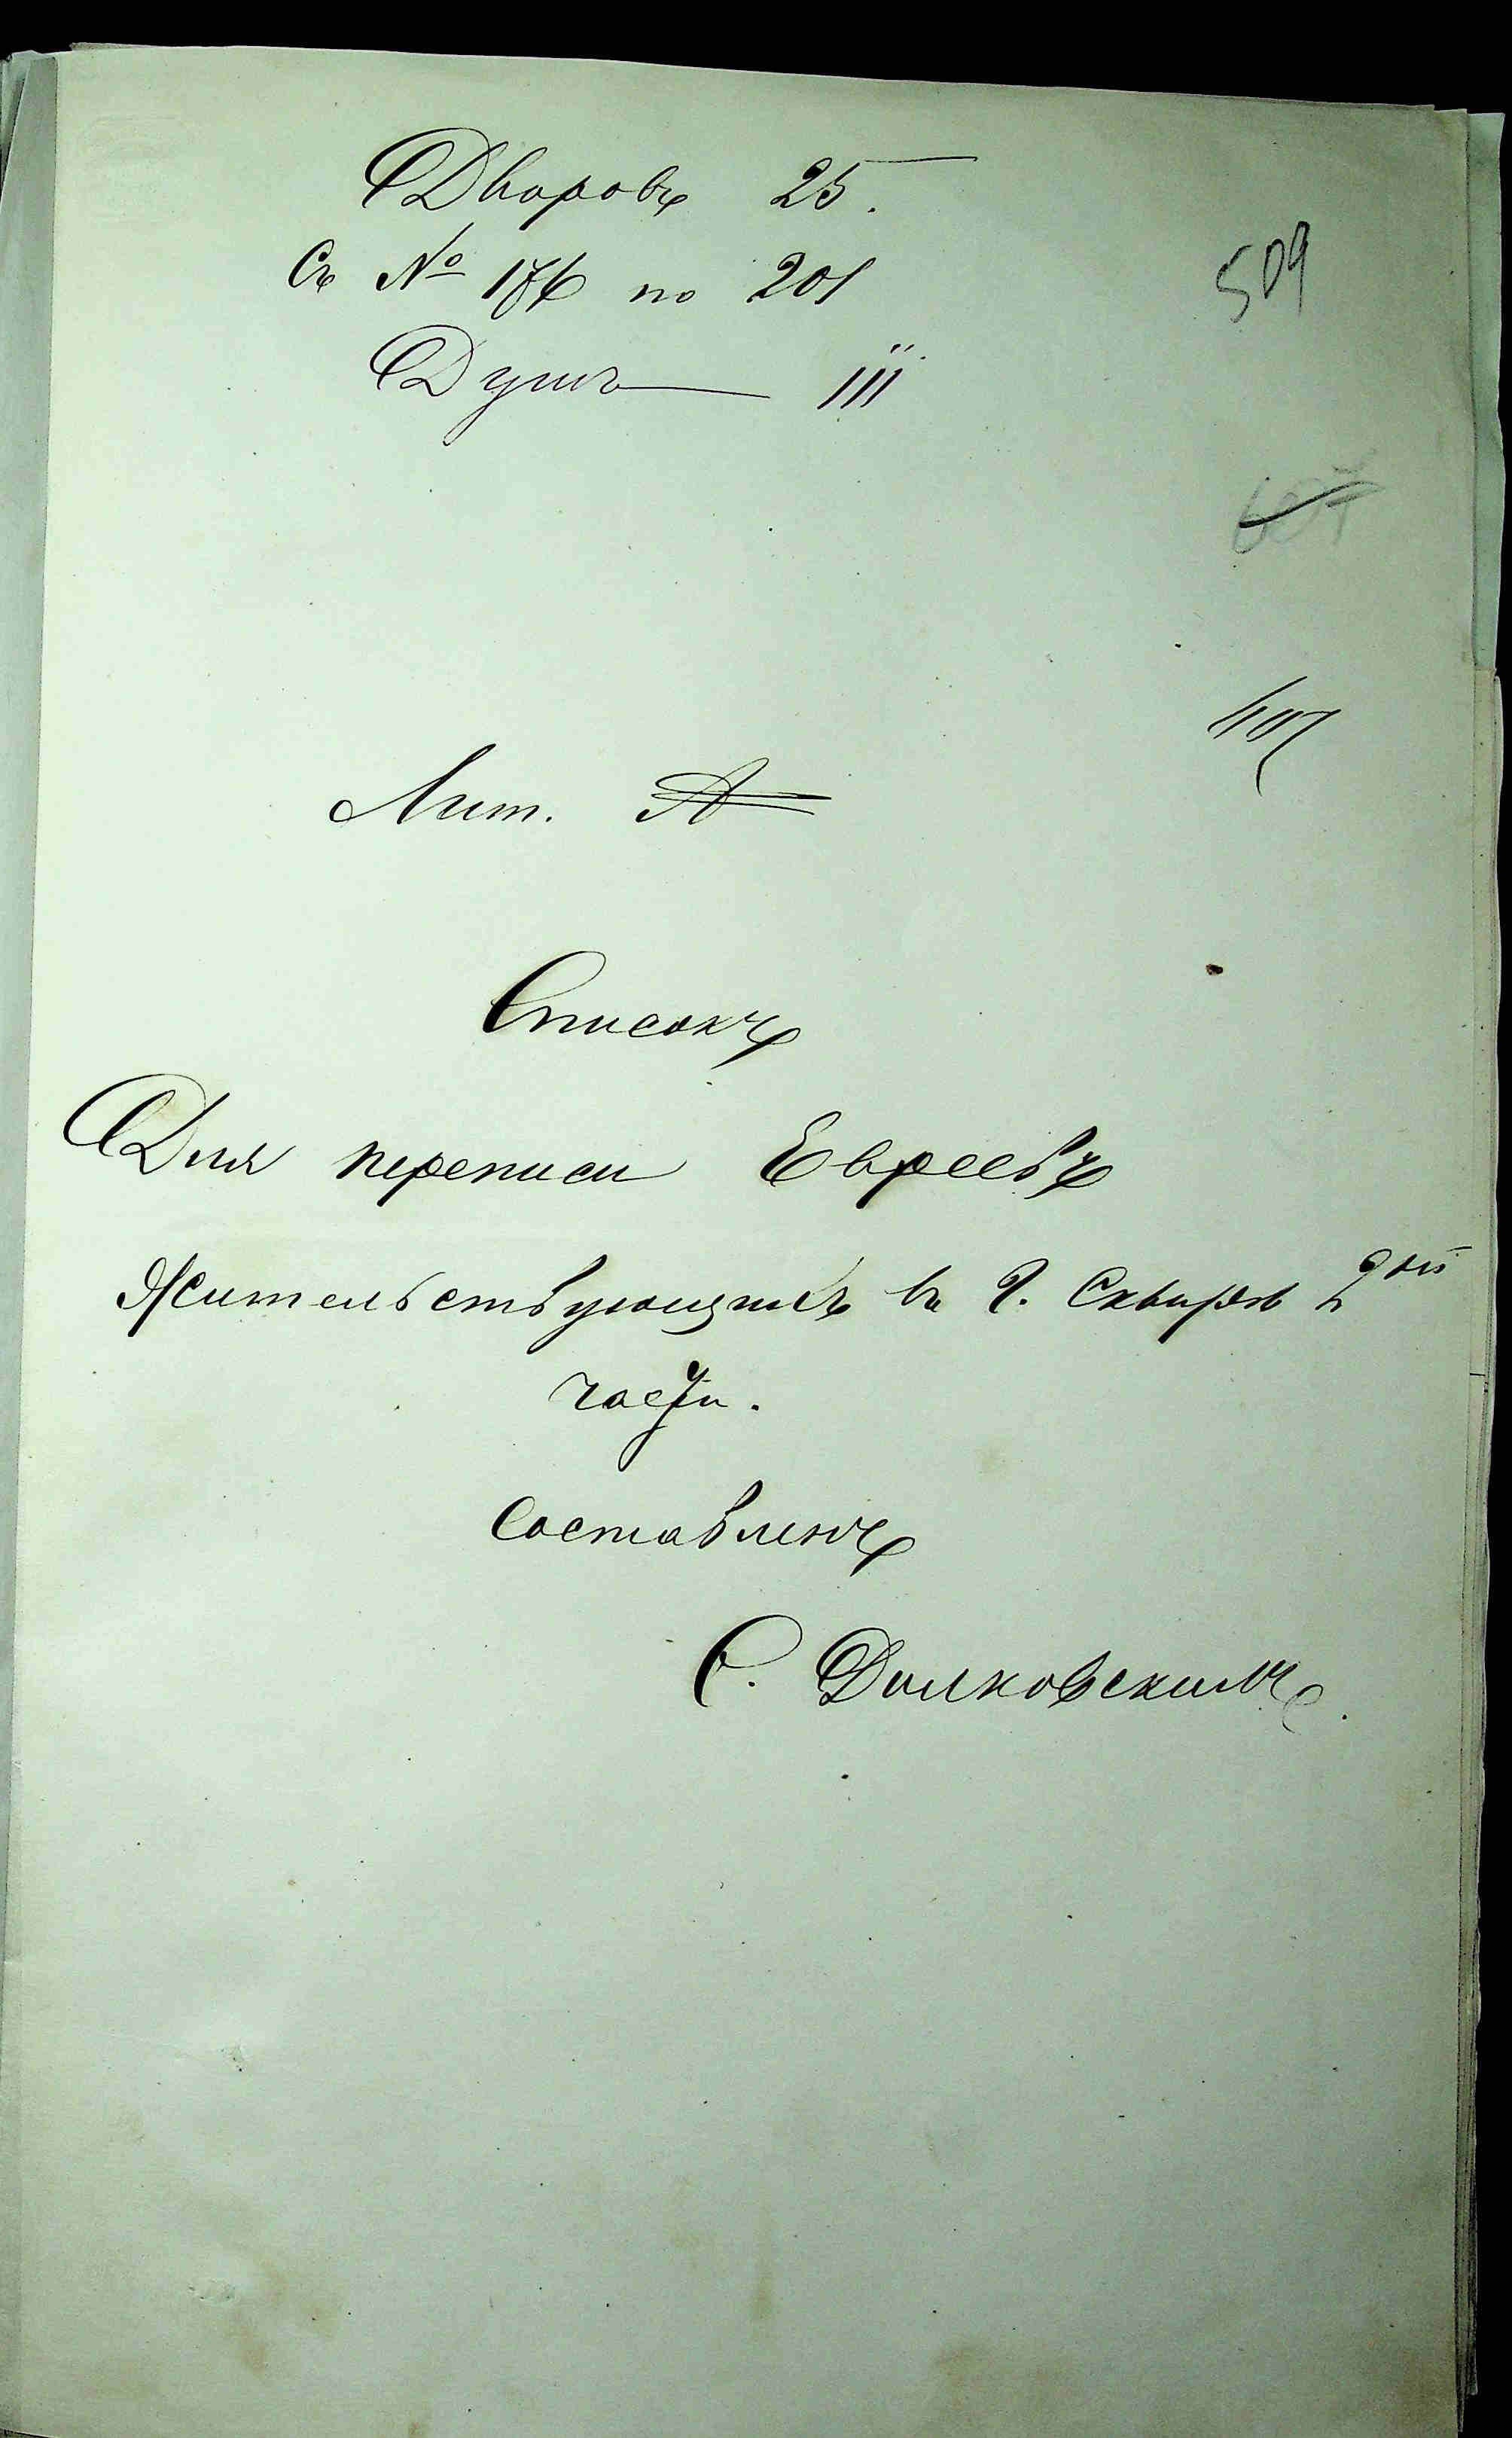 Дворовъ 25.
Съ № 176 по 201
509
Душъ 111
407
Лит. А
Списокъ
Для переписи Евреевъ
Жительствующихъ въ г. Сквирѣ 2ой
части.
Составленъ
С. Дилковскимъ.